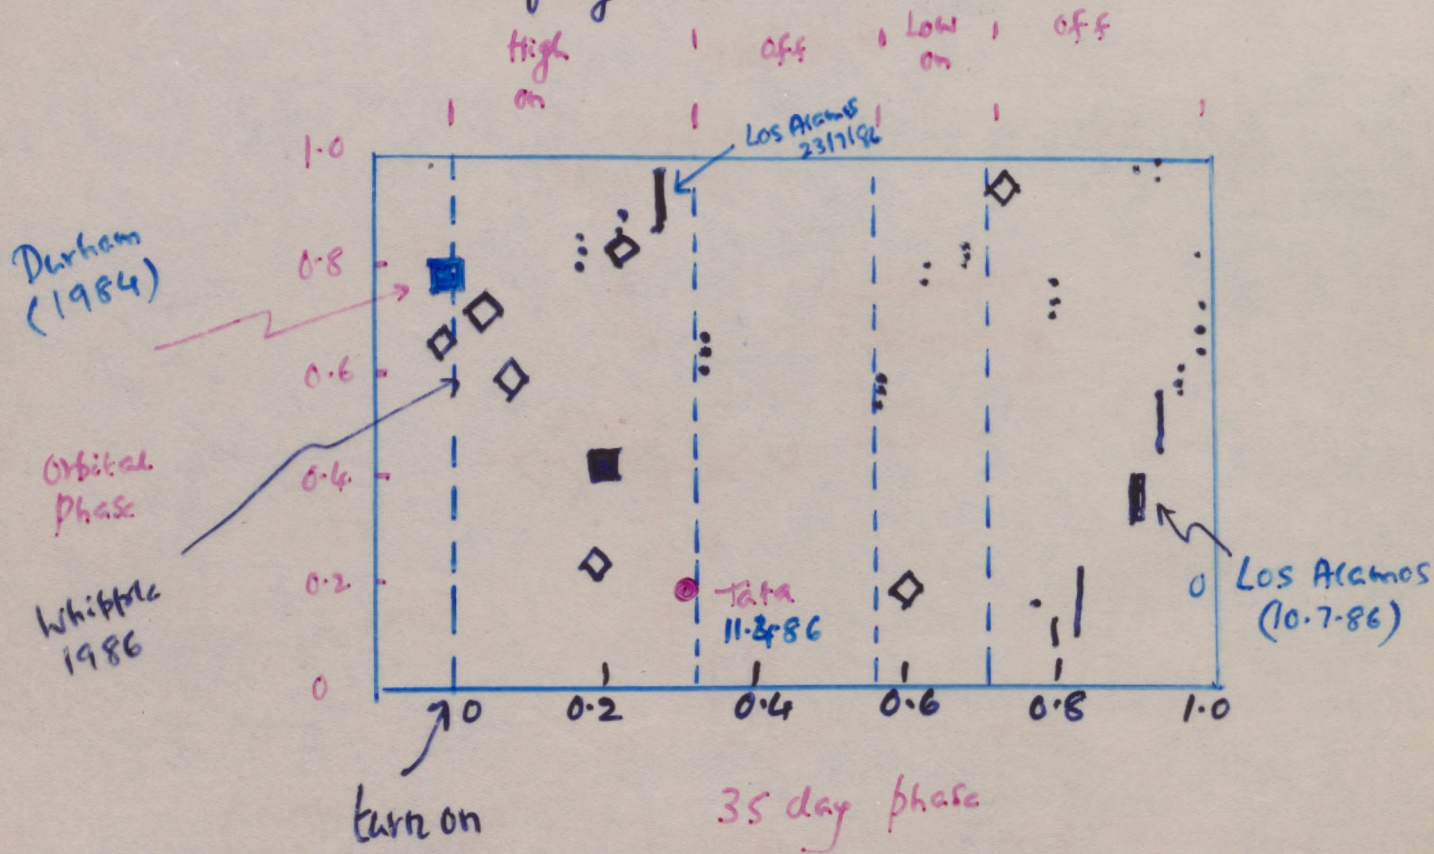 High
on
off
Low
on
off
Los Alamos
23/7/86
1.0
Durham
(1984)
0.8
0.6
Orbital
Phase
0.4
Whipple
1986
0.2
Tata
Los Alamos
(10.7-86)
0
0
0.2
0.4
0.6
0.8
1.0
turn on
35 day phase